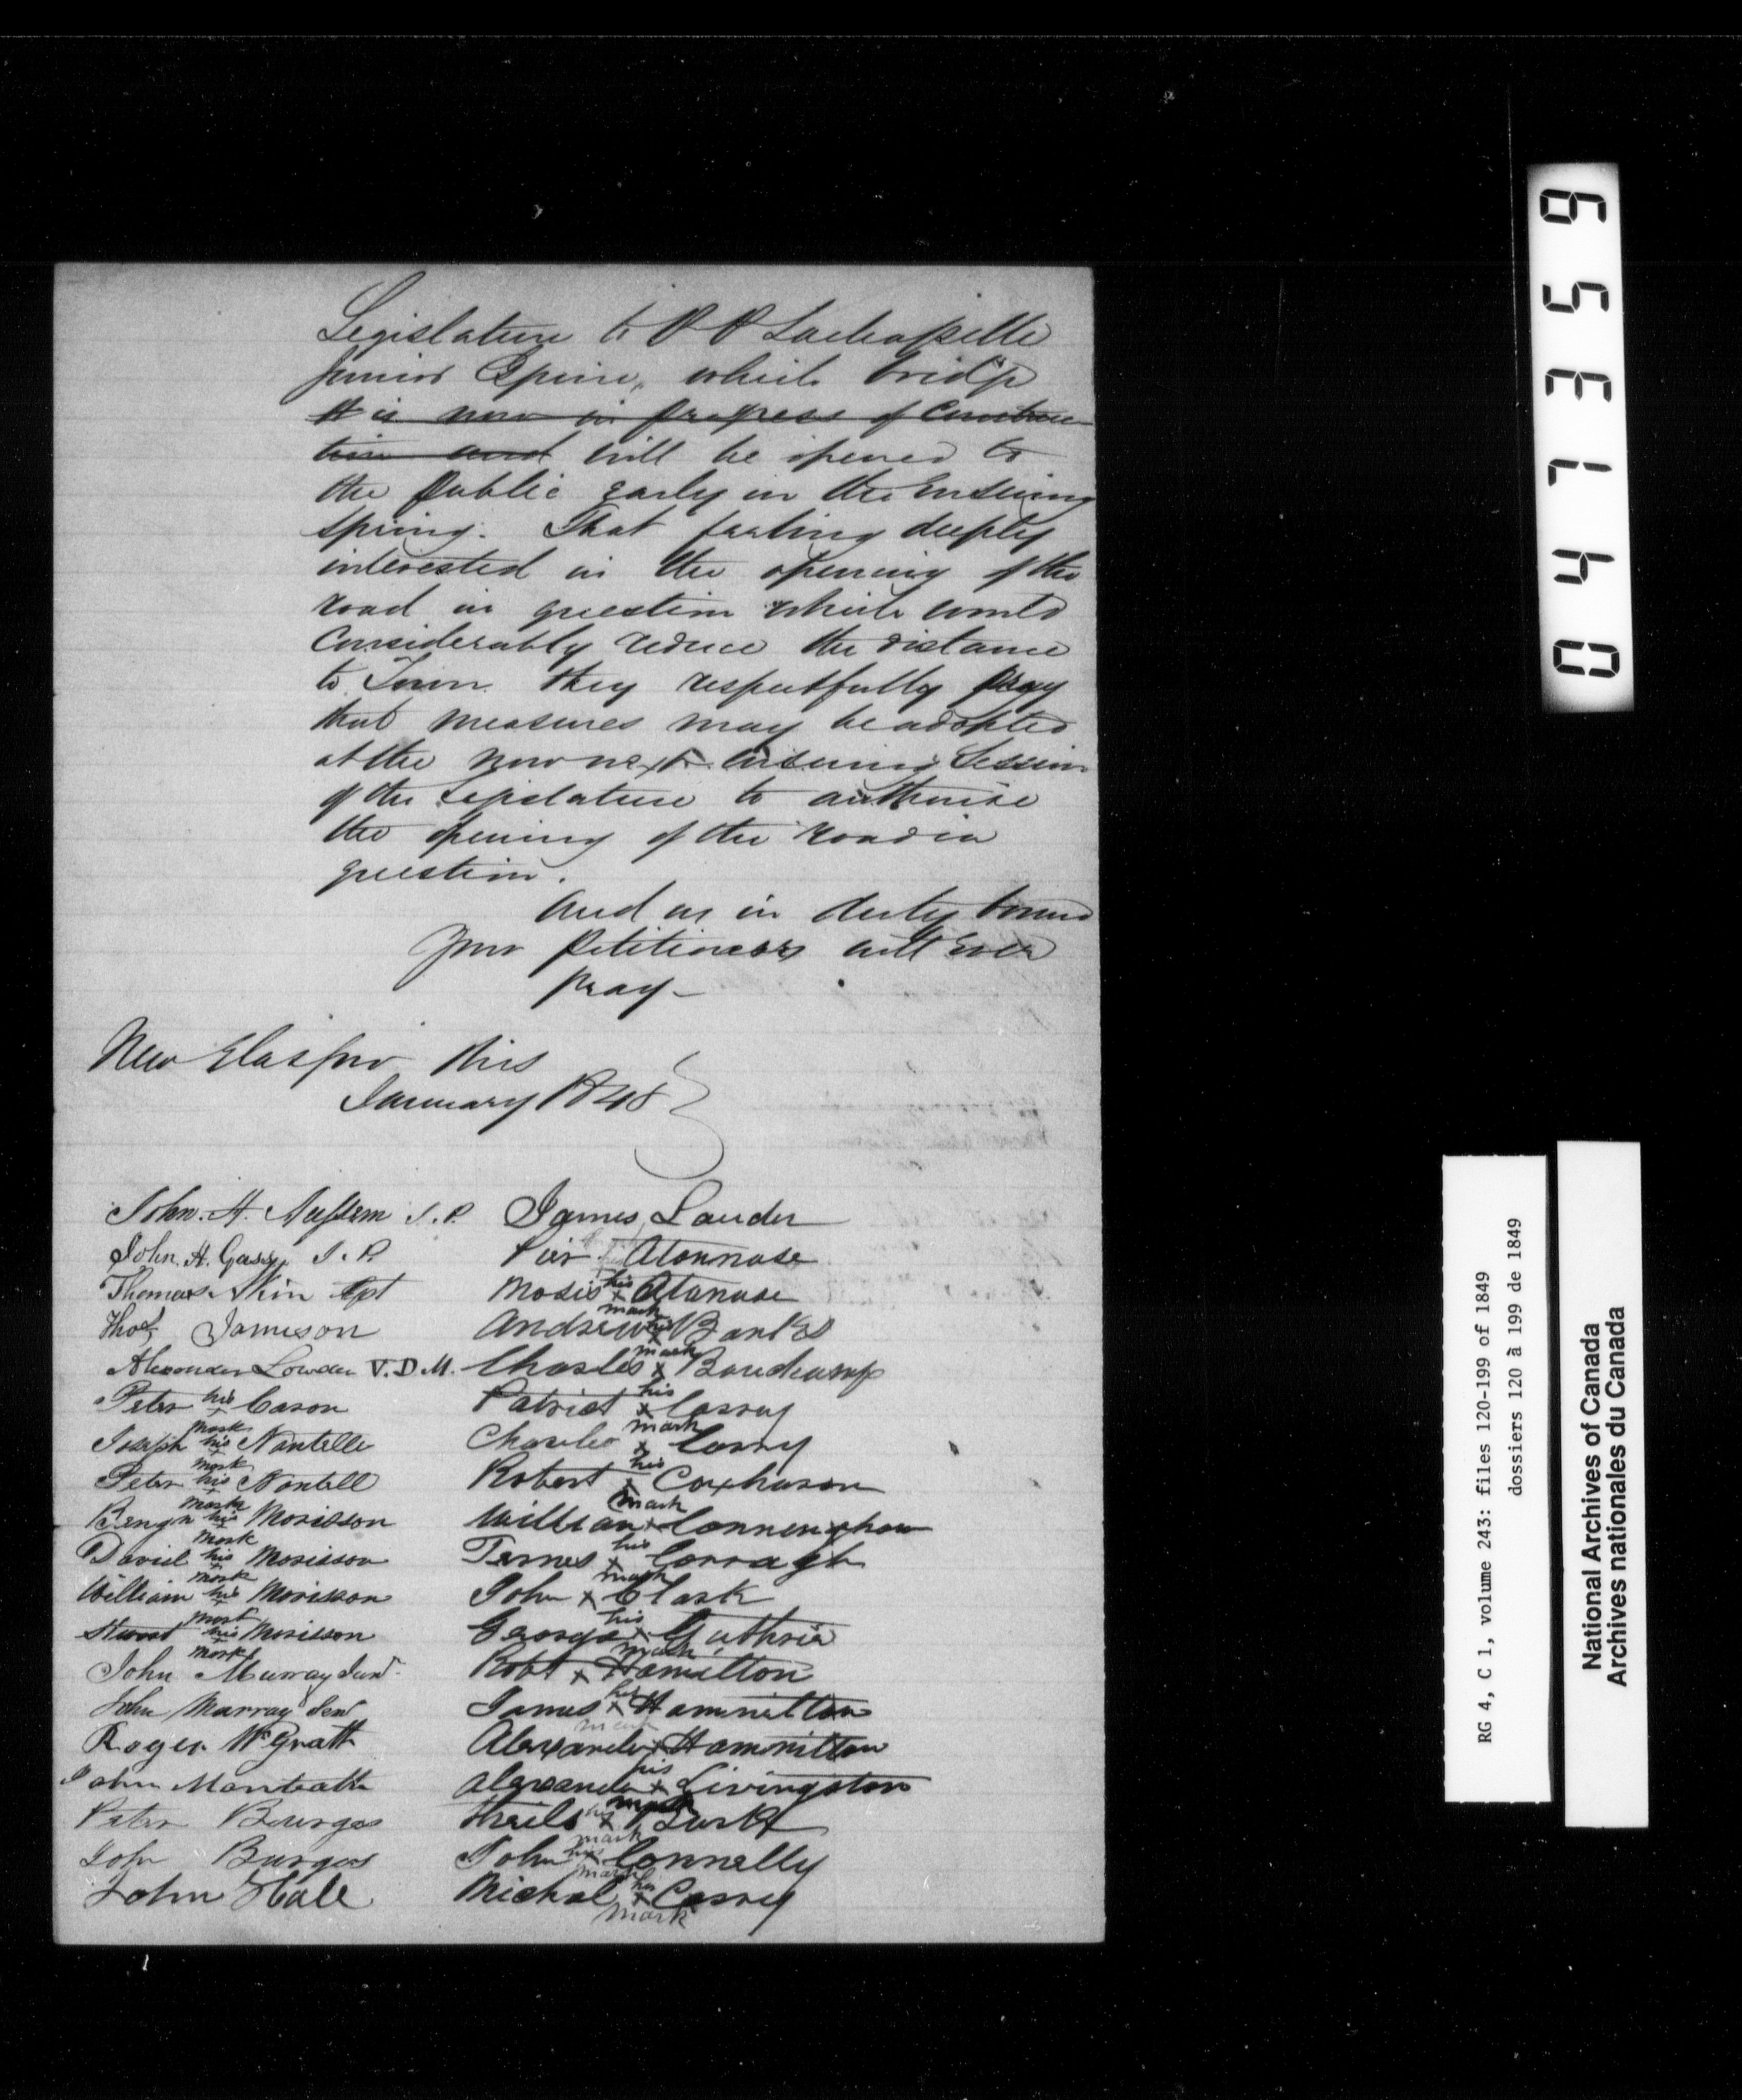 Legislature to P P Lachapelle
Junior Esquire, which bridge
it is now in progress of Construc-
tion and will be opened to
the public early in the Ensuing
Spring. That feeling deeply
interested in the opening of the
road in question which would
Considerably reduce the distance
to Town they respectfully pray
that measures may be adopted
at the now next ensuing Session
of the Legislature to authorise
the opening of the road in
question.
And as in duty bound
Your Petitioners will Ever
pray-
New Glasgow this
January 1848
John. H. J. P. James Lauder
John. H. J. P. Atonnase
Thomas Cpt Moses his x mark Atanase
Thos Jameson Andrew his x mark
Alexander Lowden V. D. M. Charles x Bauchamp
Peter his x mark Cason Patrick his x mark Casray
Joseph his x mark Nantelle Charles x
Peter his x mark Nantell Robert his x mark
his x mark Morisson William x
David his x mark Morisson his x mark
William his x mark Morisson John x Clark
his x mark Morisson George his x mark Guthrie
John Murray Junr Robt x Hamilton
John Murray Senr James his x mark Hammilton
Roger McGrath Alexander x Hammilton
John Monteath Alexander his x mark Livingston
Peter Burges his x mark
John Burges John his x mark Connelly
John Hall Michal his x mark Casray
047359
RG 4, C 1, volume 243: files 120-199 of 1849
dossiers 120 à 199 de 1849
National Archives of Canada
Archives nationales du Canada